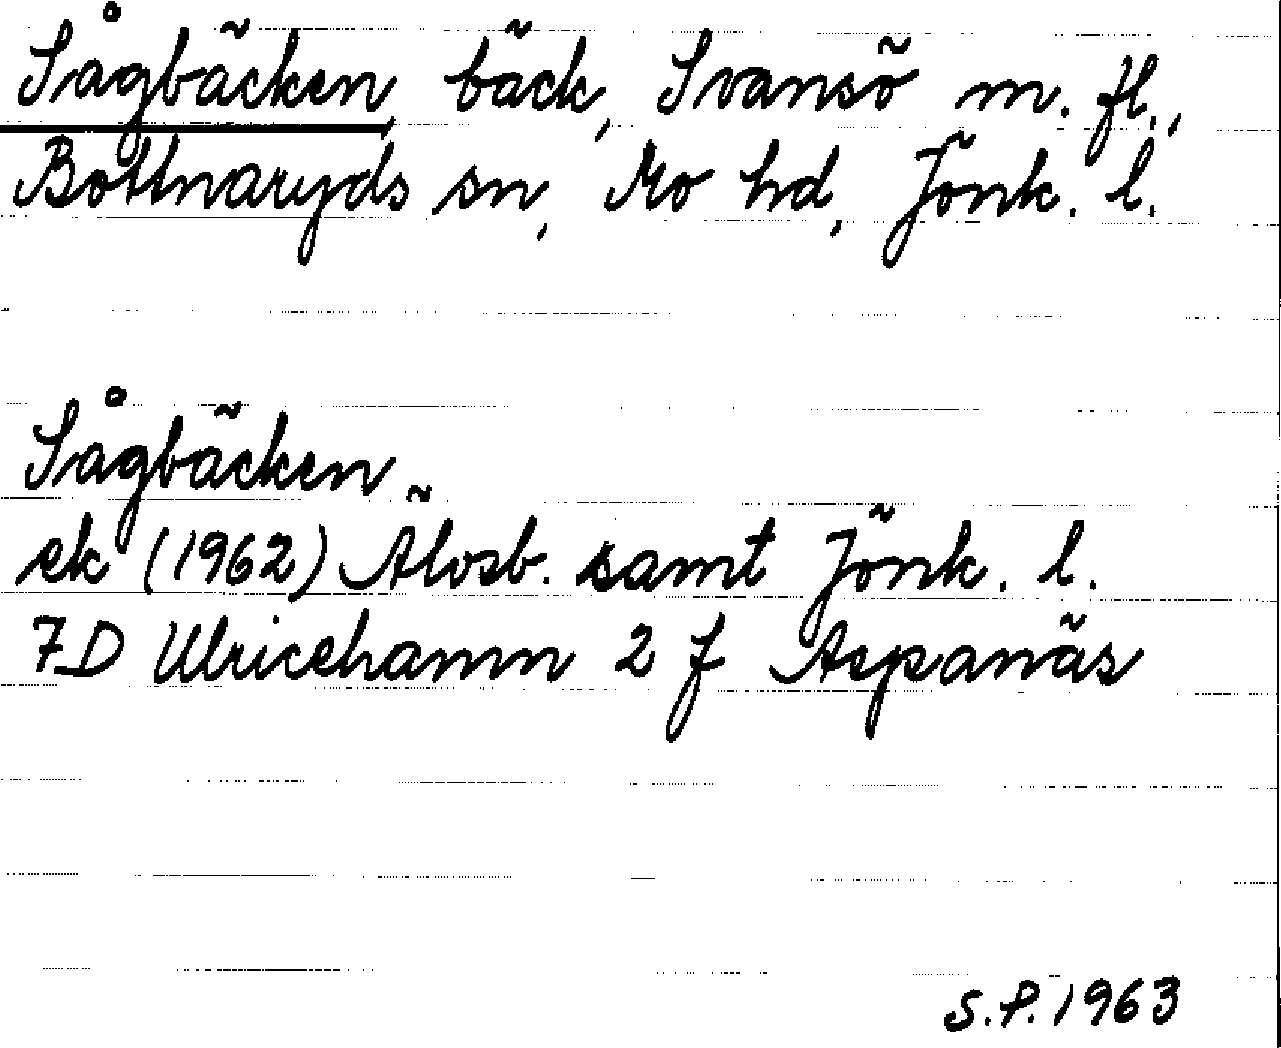 Sågbäcken, bäck, Svansö m. fl.,
Bottnaryds sn, Mo hd, Jönk. l.
Sågbäcken
ek (1962) Älvsb. samt Jönk. l.
7D Ulricehamn 2 f Aspanäs
S.P. 1963